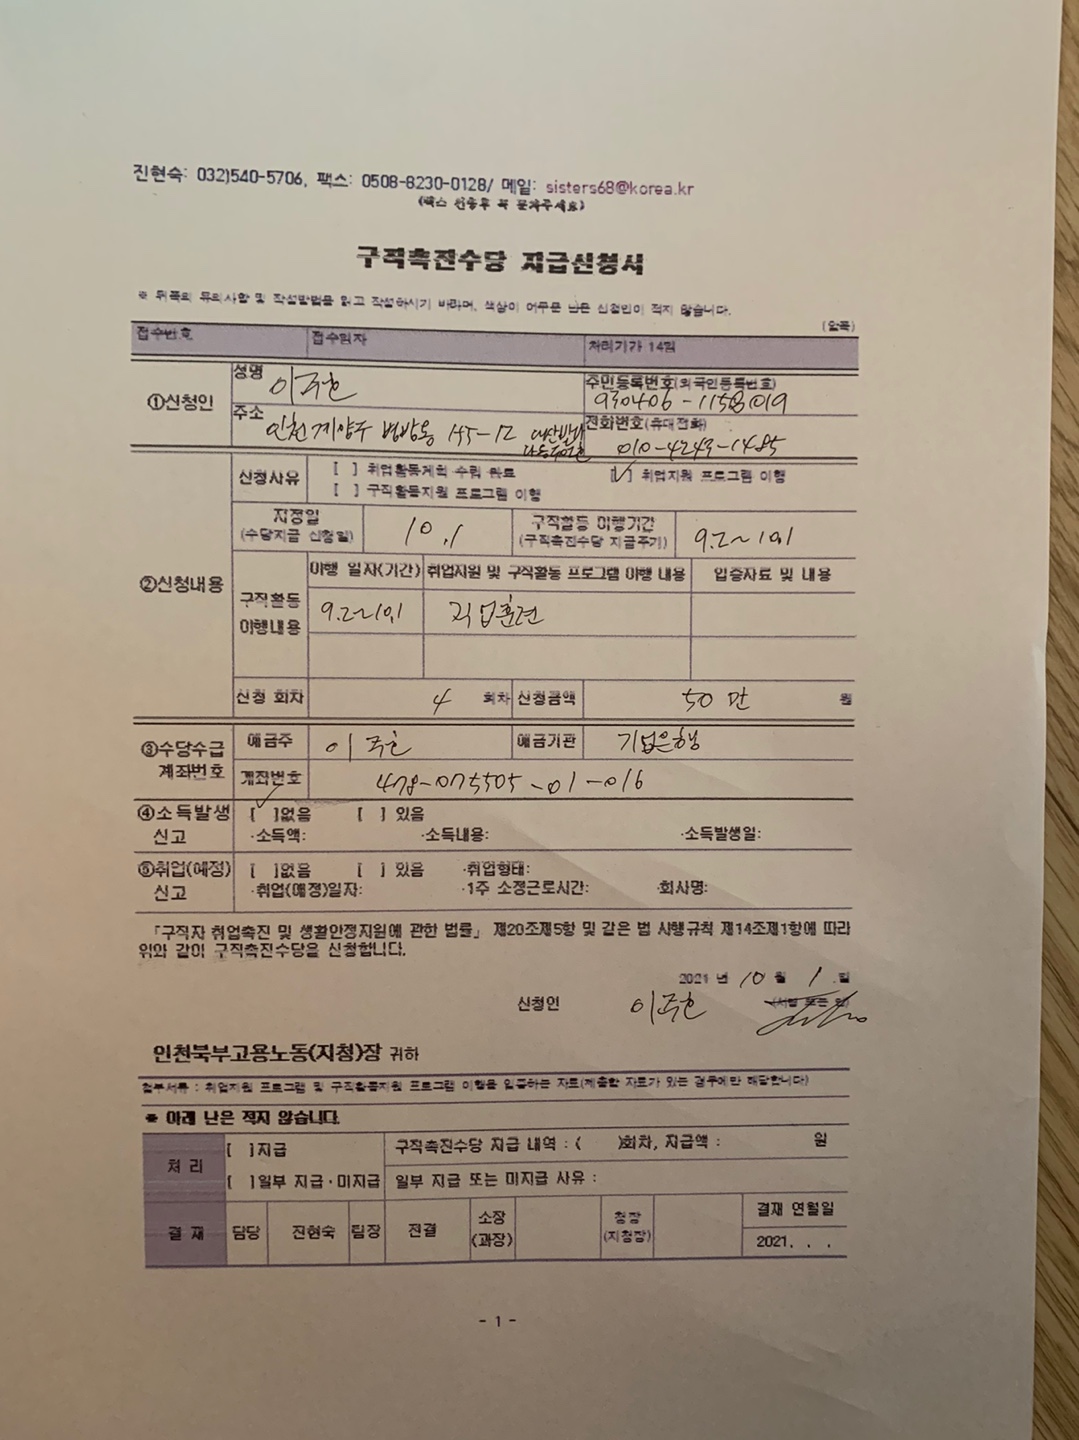 진현숙: 032)540-5706, 팩스: 0508-8230-0128/ 메일: sisters68@korea.kr
(팩스 전송후 꼭 문자주세요)
구직촉진수당 지급신청서
※ 뒤쪽의 유의사항 및 작성방법을 읽고 작성하시기 바라며, 색상이 어두운 난은 신청인이 적지 않습니다.
(앞쪽)
접수번호 접수일자 처리기간 14일
①신청인 성명 주민등록번호(외국인등록번호)
930406-1158019
주소 인천 계양구 전화번호(휴대전화)
010-4243-1485
②신청내용 신청사유 [ ] 취업활동계획 수립 완료 [✓] 취업지원 프로그램 이행
[ ] 구직활동지원 프로그램 이행
지정일 (수당지급 신청일) 10.1 구직활동 이행기간 (구직촉진수당 지급주기) 9.2~10.1
구직활동 이행내용 이행 일자(기간) 취업지원 및 구직활동 프로그램 이행 내용 입증자료 및 내용
9.2~10.1 직업훈련
신청 회차 4 회차 신청금액 50만 원
③수당수급 계좌번호 예금주 예금기관 기업은행
계좌번호 478-075505-01-016
④소득발생 신고 [✓]없음 [ ] 있음
·소득액: ·소득내용: ·소득발생일:
⑤취업(예정) 신고 [ ]없음 [ ] 있음 ·취업형태:
·취업(예정)일자: ·1주 소정근로시간: ·회사명:
「구직자 취업촉진 및 생활안정지원에 관한 법률」 제20조제5항 및 같은 법 시행규칙 제14조제1항에 따라
위와 같이 구직촉진수당을 신청합니다.
2021 년 10 월 1 일
신청인 (서명 또는 인)
인천북부고용노동(지청)장 귀하
첨부서류 : 취업지원 프로그램 및 구직활동지원 프로그램 이행을 입증하는 자료(제출할 자료가 있는 경우에만 해당합니다)
※ 아래 난은 적지 않습니다.
처 리 [ ]지급 구직촉진수당 지급 내역 : ( )회차, 지급액 : 원
[ ]일부 지급·미지급 일부 지급 또는 미지급 사유 :
결 재 담당 진현숙 팀장 전결 소장 (과장) 청장 (지청장) 결재 연월일
2021. . .
- 1 -